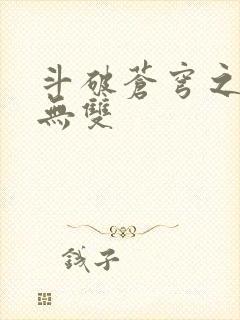 斗破蒼穹之
無雙
錢子